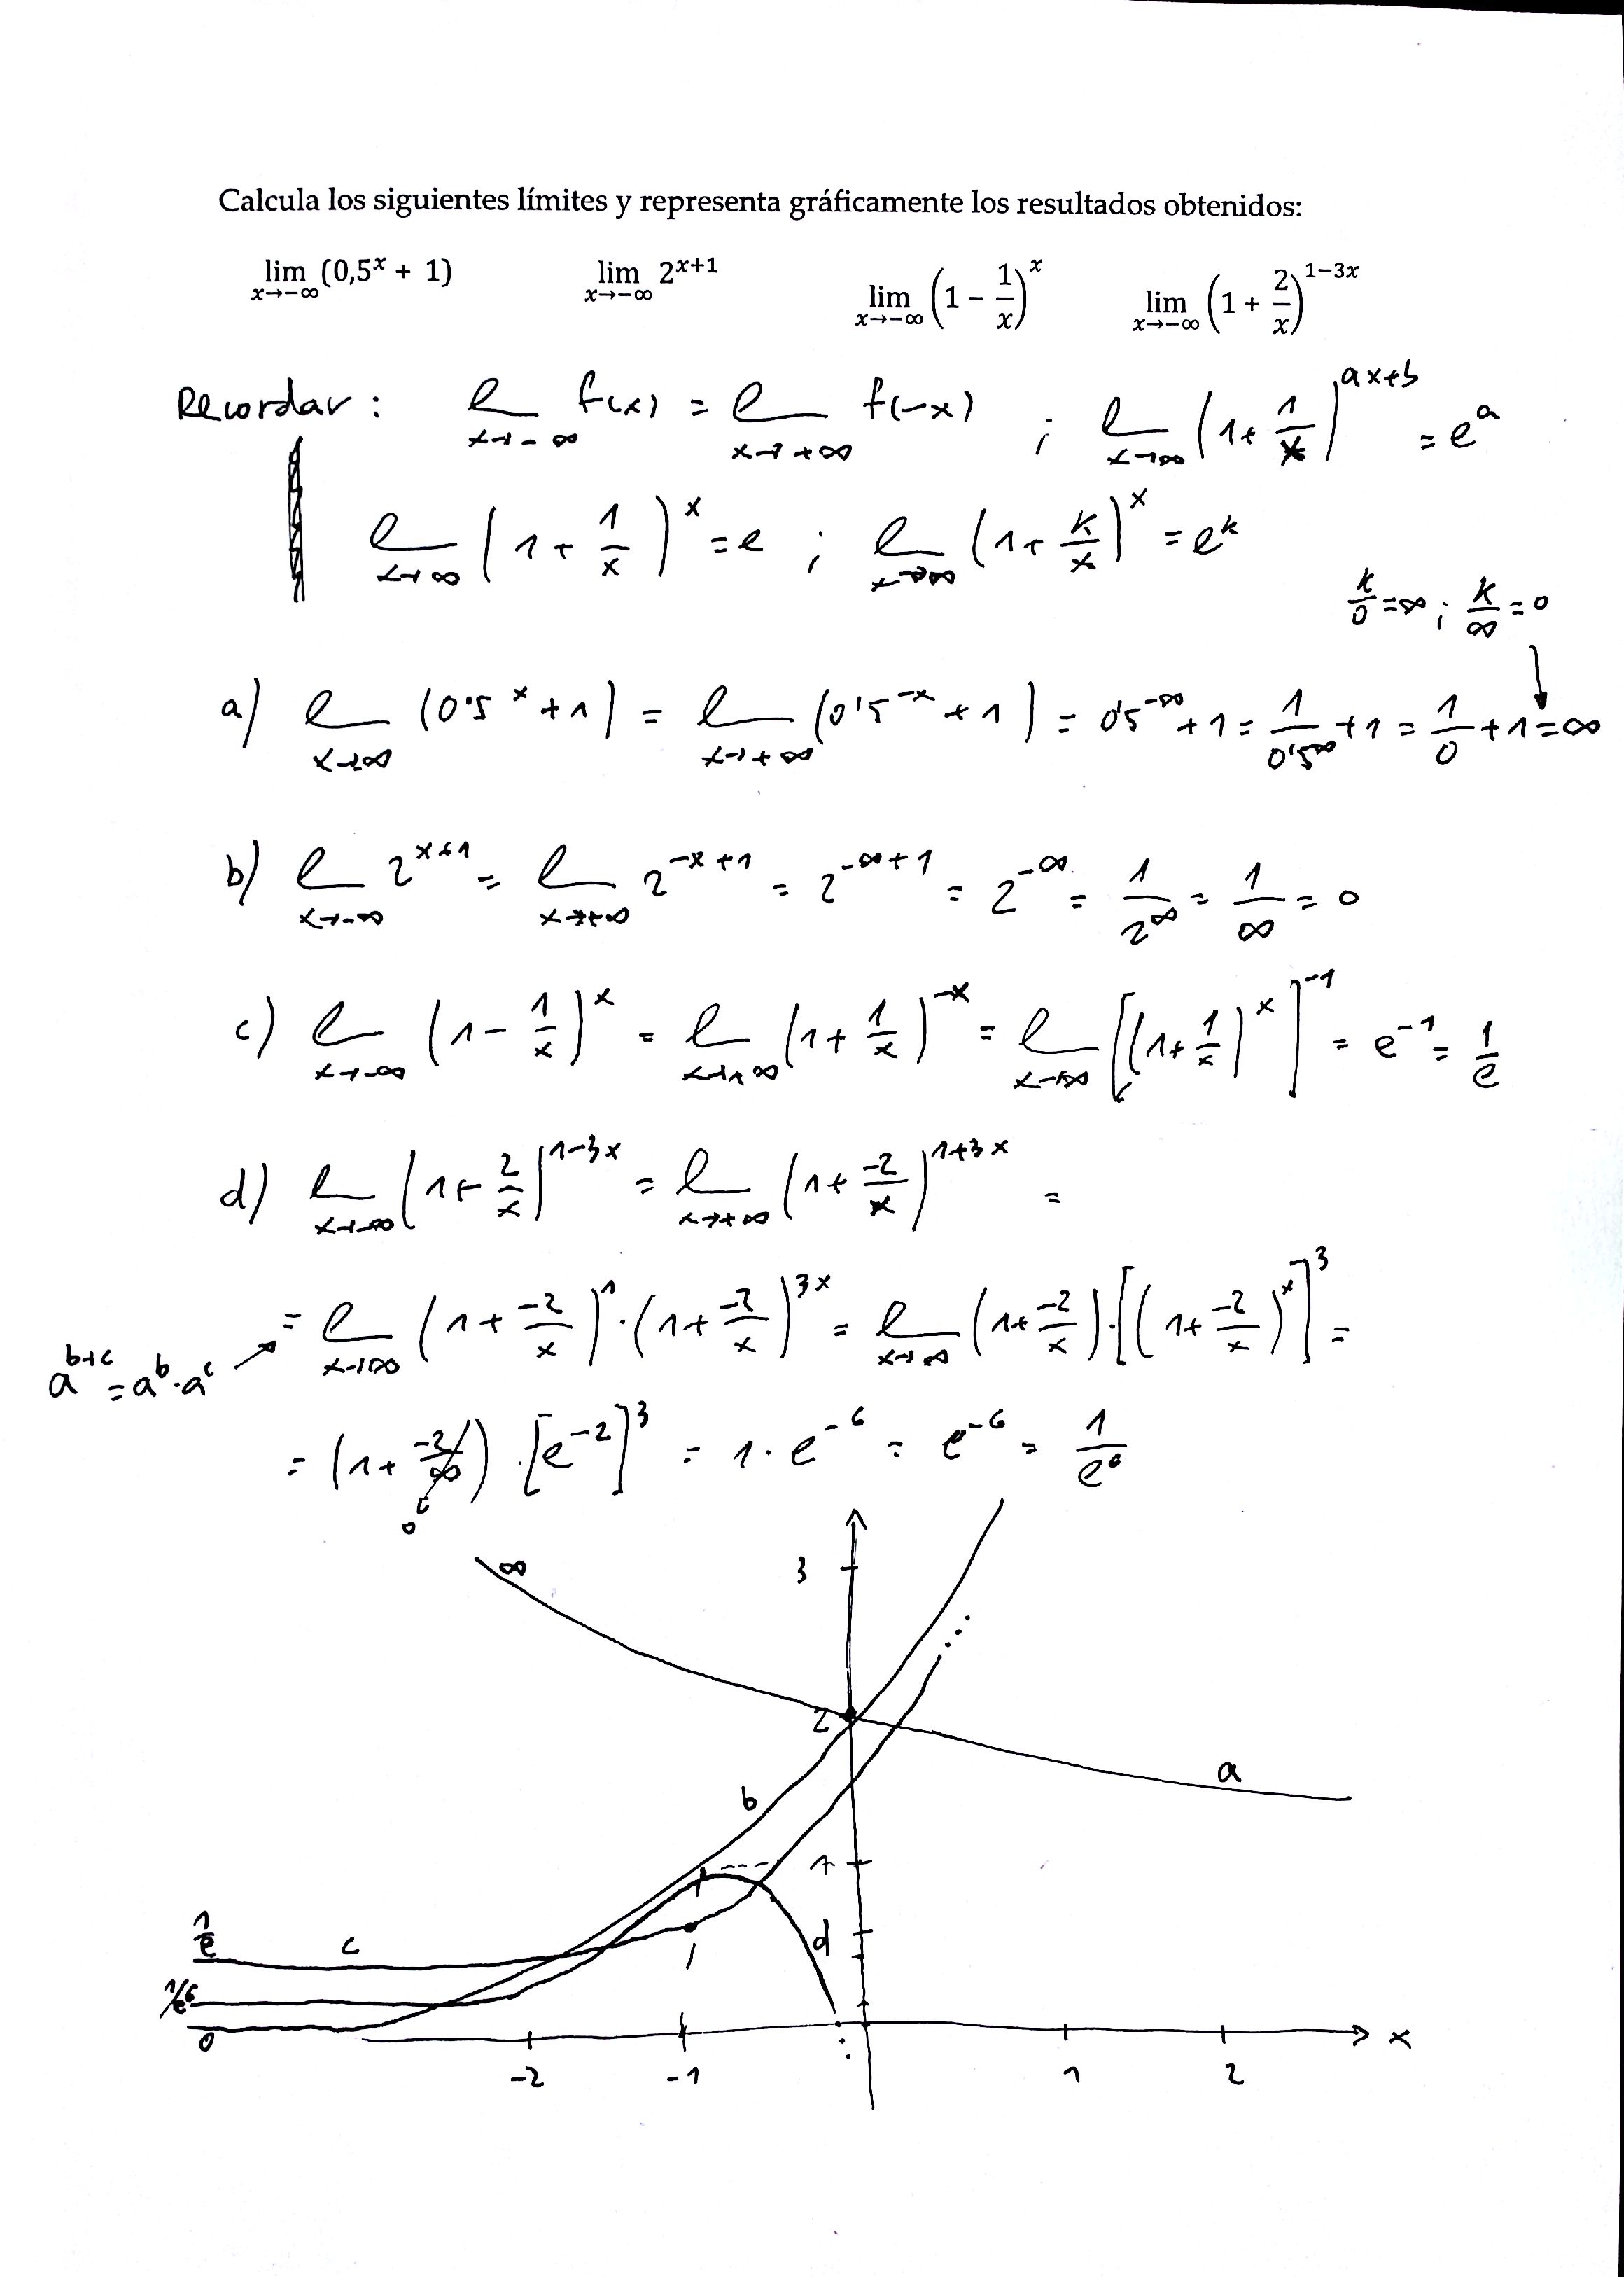 Calcula los siguientes límites y representa gráficamente los resultados obtenidos:
lim x→−∞ (0,5^x + 1) lim x→−∞ 2^(x+1) lim x→−∞ (1 − 1/x)^x lim x→−∞ (1 + 2/x)^(1−3x)
Recordar: l x→−∞ f(x) = l x→+∞ f(−x) ; l x→∞ (1+ 1/x)^(ax+b) = e^a
l x→∞ (1 + 1/x)^x = e ; l x→∞ (1+ k/x)^x = e^k
k/0 = ∞ ; k/∞ = 0
a) l x→∞ (0'5^x + 1) = l x→+∞ (0'5^−x + 1) = 0'5^−∞ + 1 = 1/0'5^∞ + 1 = 1/0 + 1 = ∞
b) l x→−∞ 2^(x+1) = l x→+∞ 2^(−x+1) = 2^(−∞+1) = 2^−∞ = 1/2^∞ = 1/∞ = 0
c) l x→−∞ (1 − 1/x)^x = l x→+∞ (1+ 1/x)^−x = l x→∞ [(1+ 1/x)^x]^−1 = e^−1 = 1/e
d) l x→−∞ (1+ 2/x)^(1−3x) = l x→+∞ (1+ −2/x)^(1+3x) =
= l x→∞ (1 + −2/x)^1 · (1+ −2/x)^3x = l x→∞ (1+ −2/x) · [(1+ −2/x)^x]^3 =
a^(b+c) = a^b · a^c
= (1+ −2/∞) · [e^−2]^3 = 1 · e^−6 = e^−6 = 1/e^6
0
∞
3
2
a
b
1
1/e
c
d
1/e^6
0
x
−2 −1 1 2